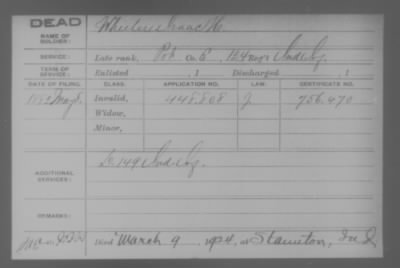 DEAD
NAME OF SOLDIER: Wheeler Isaac M.
SERVICE: Late rank, Pvt Co. E, 124 Reg't Ind Inf.
TERM OF SERVICE: Enlisted , 1 Discharged , 1
DATE OF FILING. CLASS. APPLICATION NO. LAW. CERTIFICATE NO.
May Invalid, 448.808 J 756.470
Widow,
Minor,
ADDITIONAL SERVICES: 149 Ind Inf.
REMARKS:
Died March 9, 1924, at Staunton, Ind